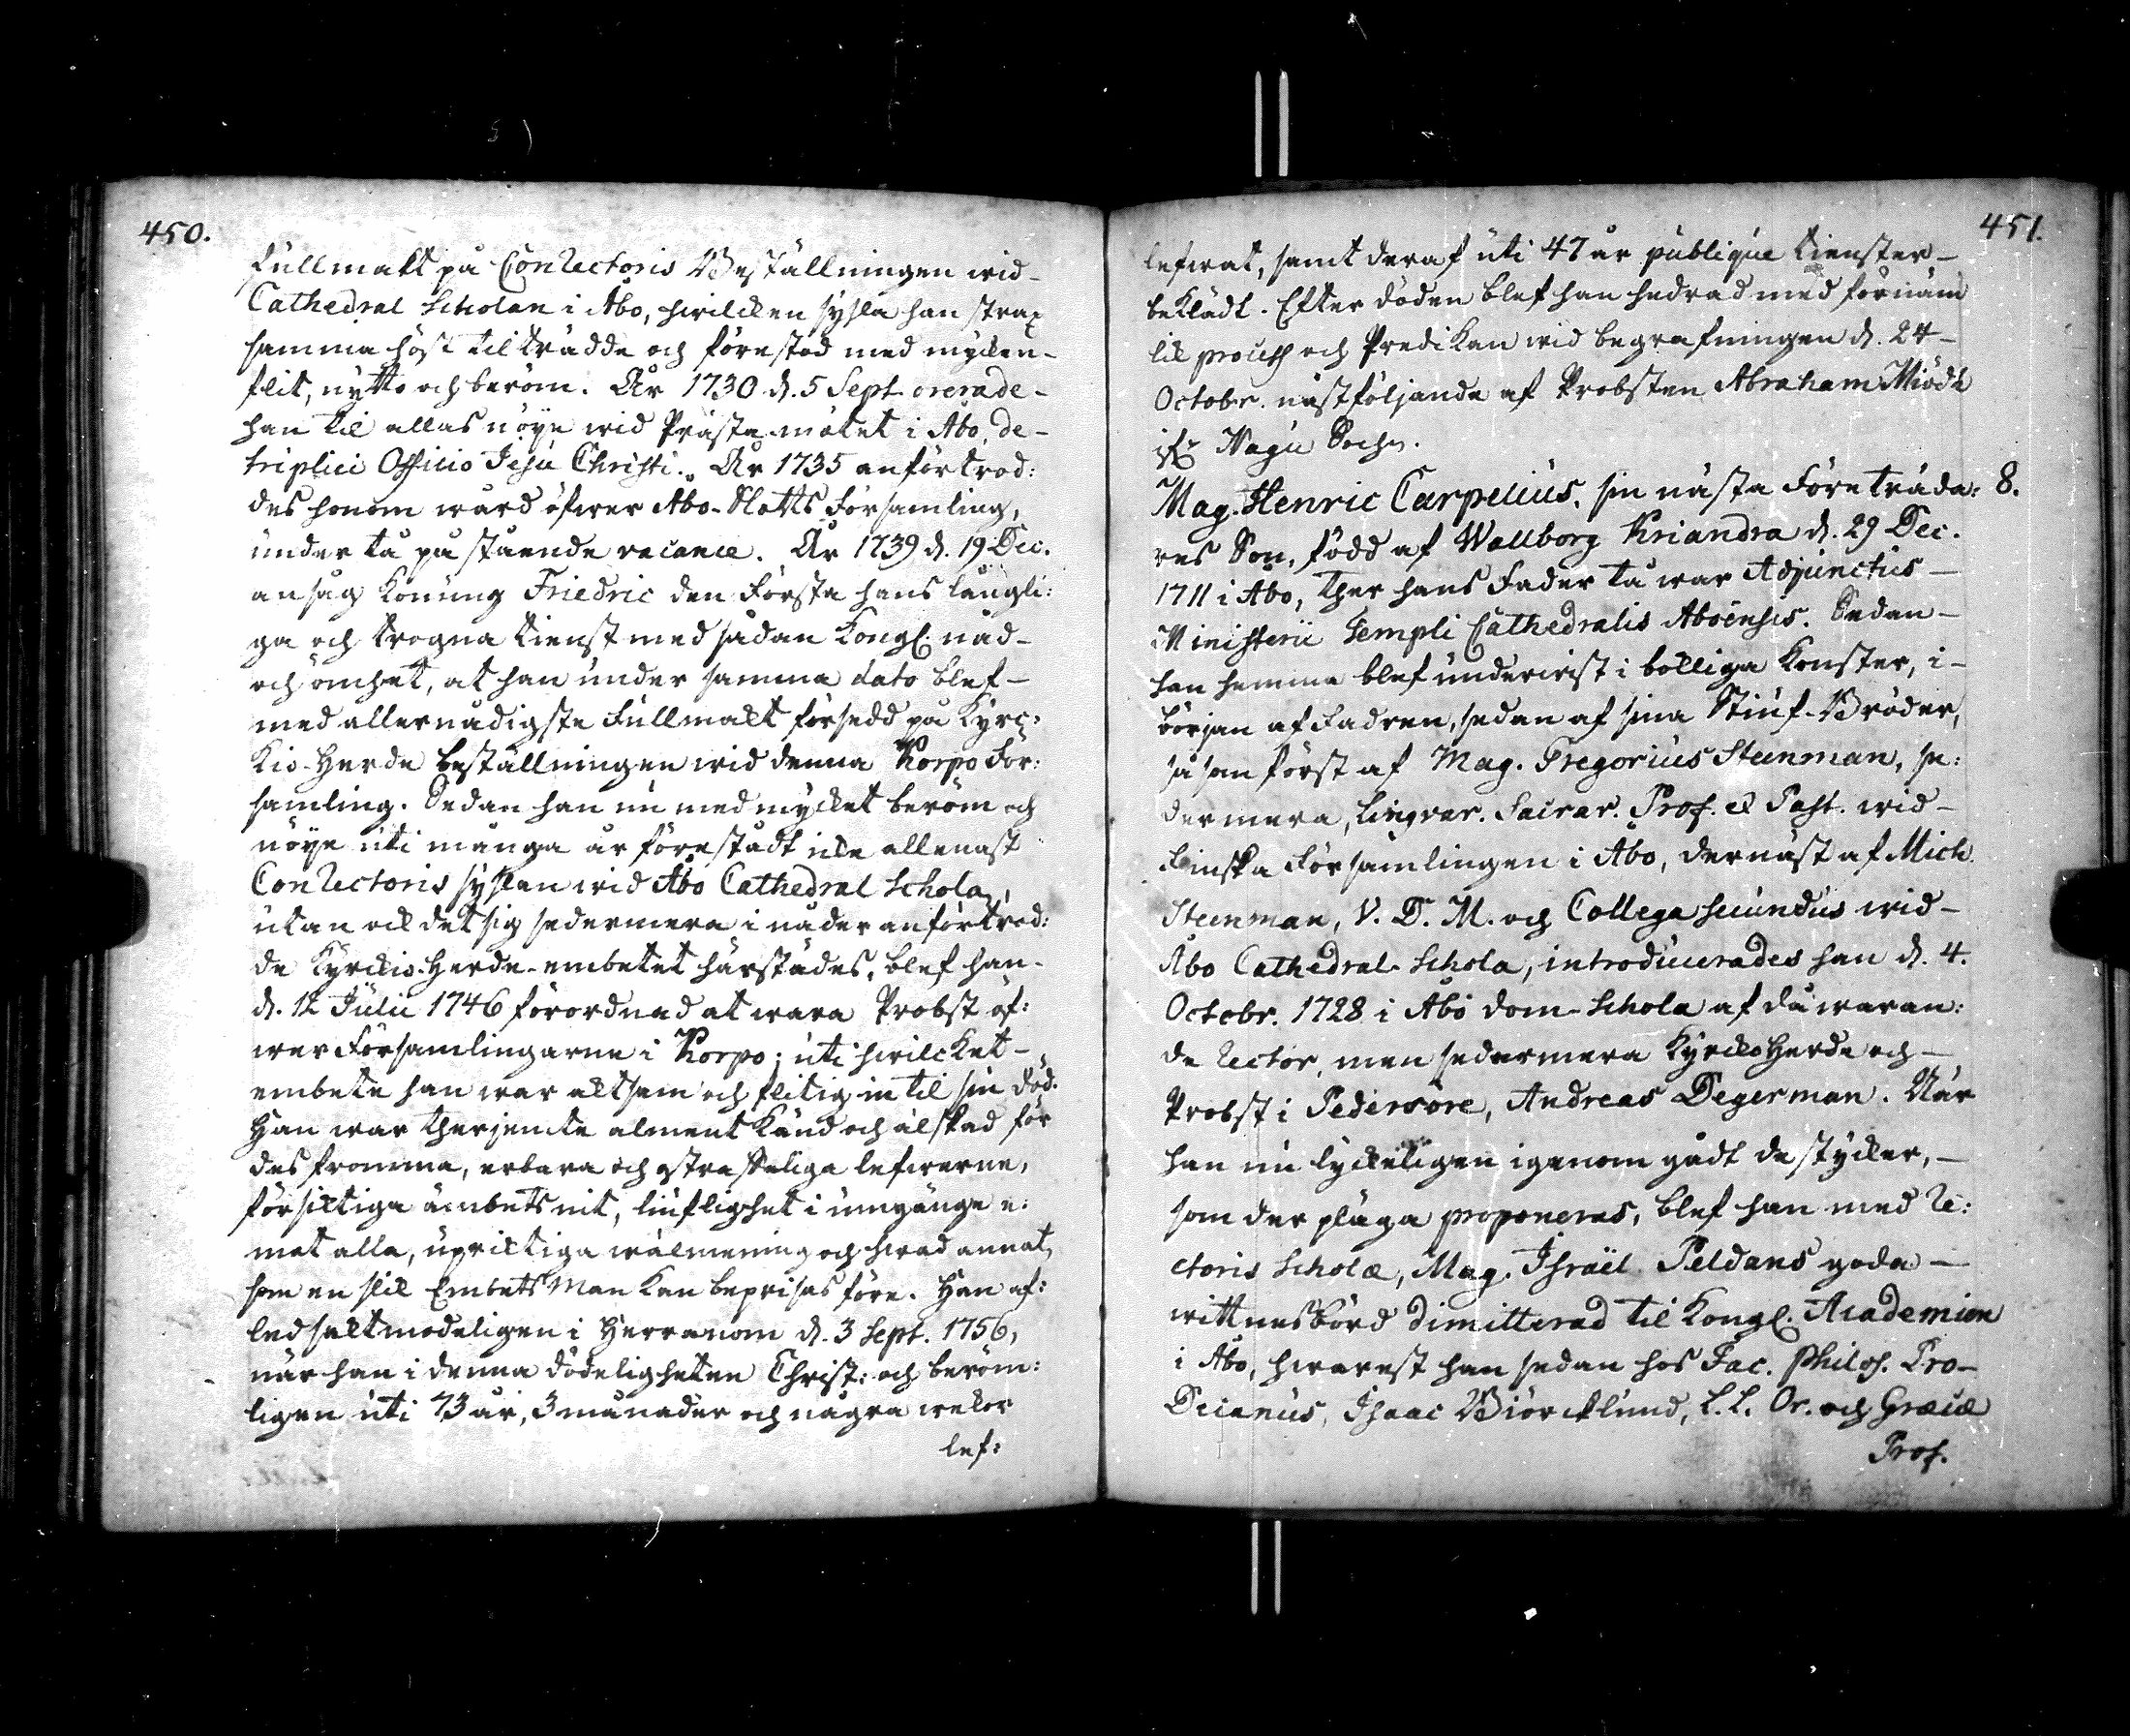 450.
fullmakt på ConRectoris Beställningen wid-
Cathedral Scholan i Åbo, hwilcken sysla han strax
samma höst tilträdde och förestod med mycken-
flit, nytto och beröm. År 1730 d. 5 Sept. orerade-
han til allas nöye wid Prästa-mötet i Åbo, de-
triplici Officio Jesu Christi. År 1735 anförtrod:
des honom wård öfwer Åbo-Slotts Församling,
under tå påstående vacance. År 1739 d. 19 Dec.
ansåg Konung Friedric den Första hans långli:
ga och trogna tienst med sådan Kongl. nåd-
och ömhet, at han under samma dato blef-
med allernådigste Fullmakt försedd på Kyrc:
kio-Herde beställningen wid denna Korpo För:
samling. Sedan han nu med mycket beröm och
nöye uti många år förestådt icke allenast
ConRectoris syslan wid Åbo Cathedral Schola,
utan ock det sig sedermera i nåder anförtrod:
de Kyrckio-Herde-embetet härstädes, blef han-
d. 12 Julii 1746 förordnad at wara Probst öf:
wer Församlingarne i Korpo; uti hwilcket-
embete han war aktsam och flitig in til sin död.
Han war therjemte alment känd och älskad för
des fromma, erbara och ostraffeliga lefwerne,
försiktiga ämbets nit, liuflighet i umgänge e:
mot alla, upriktiga wälmening och hwad annat,
som en slik Embets Man kan beprisas före. Han af:
led saktmodeligen i Herranom d. 3 Sept. 1756,
när han i denna dödeligheten Christ: och beröm:
ligen uti 73 år, 3 månader och några wekor
lef:
451.
lefwat, samt deraf uti 47 år publique tienster-
beklädt. Efter döden blef han hedrad med förnäm
lik process och Predikan wid begrafningen d. 24-
Octobr. nästföljande af Probsten Abraham Miödh
ifr. Nagu Sochn.
Mag. Henric Carpelius, sin nästa Företräda: 8.
res Son, född af Wallborg Kriandra d. 29 Dec.
1711 i Åbo, ther hans Fader tå war Adjunctus-
Ministerii Templi Cathedralis Aboënsis. Sedan-
han hemma blef underwist i bokliga Konster, i-
början af Fadren, sedan af sina Stiuf-Bröder,
såsom först af Mag. Gregorius Steenman, se:
dermera, Lingvar. Sacrar. Prof. et Past. wid-
Finska Församlingen i Åbo, dernäst af Mich.
Steenman, V. D. M. och Collega secundus wid-
Åbo Cathedral-Schola, introducerades han d. 4.
Octobr. 1728 i Åbo Dom-Schola af då waran:
de Rector, men sedermera Kyrcko Herde och-
Probst i Pedersöre, Andreas Degerman. När
han nu lyckeligen igenom gådt de stycker,-
som der pläga proponeras, blef han med Re:
ctoris Scholæ, Mag. Israël Peldans goda-
wittnesbörd dimitterad til Kongl. Academien
i Åbo, hwarest han sedan hos Fac. Philos. Pro-
Decanus, Isaac Biörcklund, L.L. Or. och Græcæ
Prof.